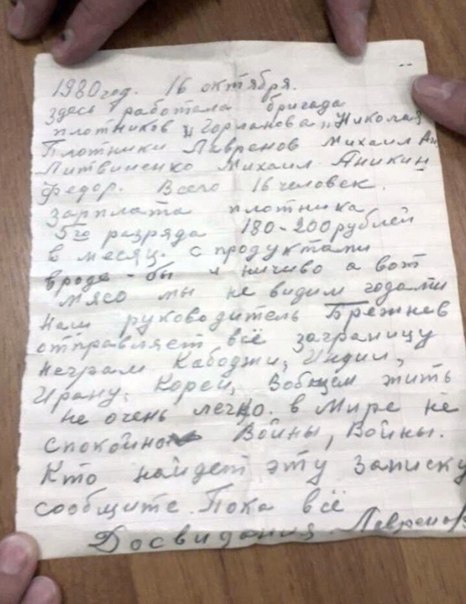 1980год. 16 октября.
здесь работала бригада
плотников "Горланова" Николая
Плотники Лавренов Михаил Ан
Литвиненко Михаил Аникин
Федор. Всего 16 человек.
Зарплата плотника
5го разряда 180-200 рублей
в месяц. с продуктами
вроде-бы и ничиво а вот
мясо мы не видим годами
Наш руководитель Брежнев
отправляет всё заграницу
неграм Кабоджи, Индии,
Ирану, Кореи, Вобщем жить
не очень легко. в Мире не
спокойно Войны, Войны.
Кто найдет эту записку
сообщите. Пока всё
Досвидания. Лавренов